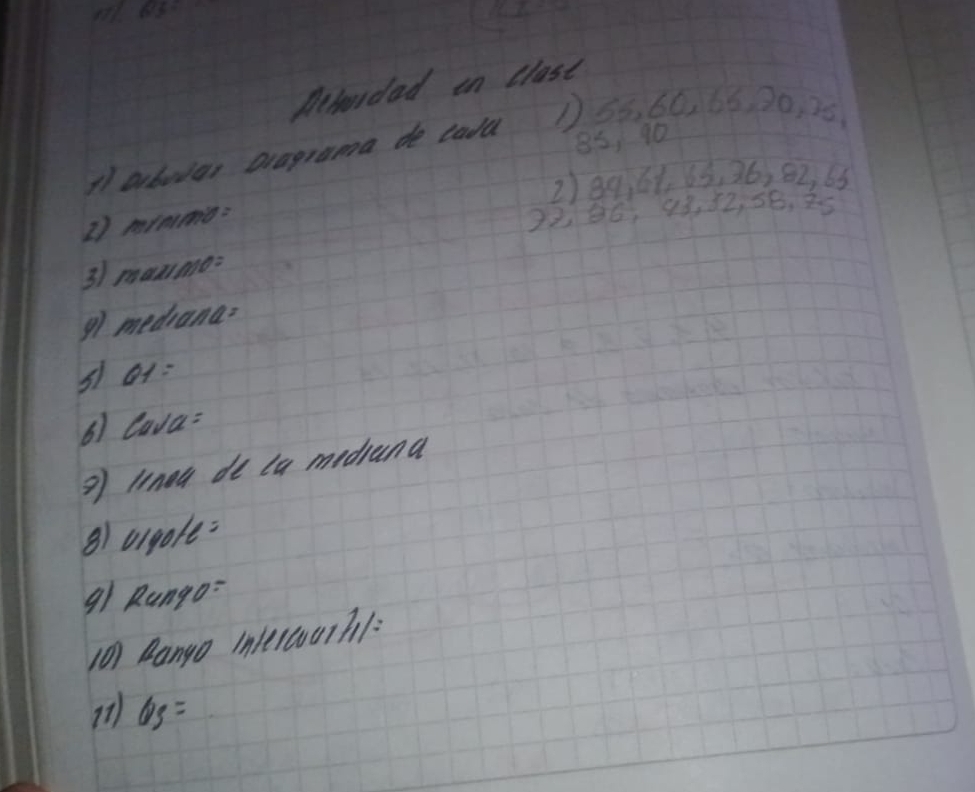 11) Q3:
Actividad en clase
1) Dibujar Diagrama de caja
2) minimo:
3) maximo:
4) mediana:
5) Q1:
6) Caja:
7) linea de la mediana
8) vigote:
9) Rango=
10) Rango intercuartil:
11) Q3=
1) 55, 60, 65, 70, 75,
85, 90
65, 76, 82, 65
58, 75